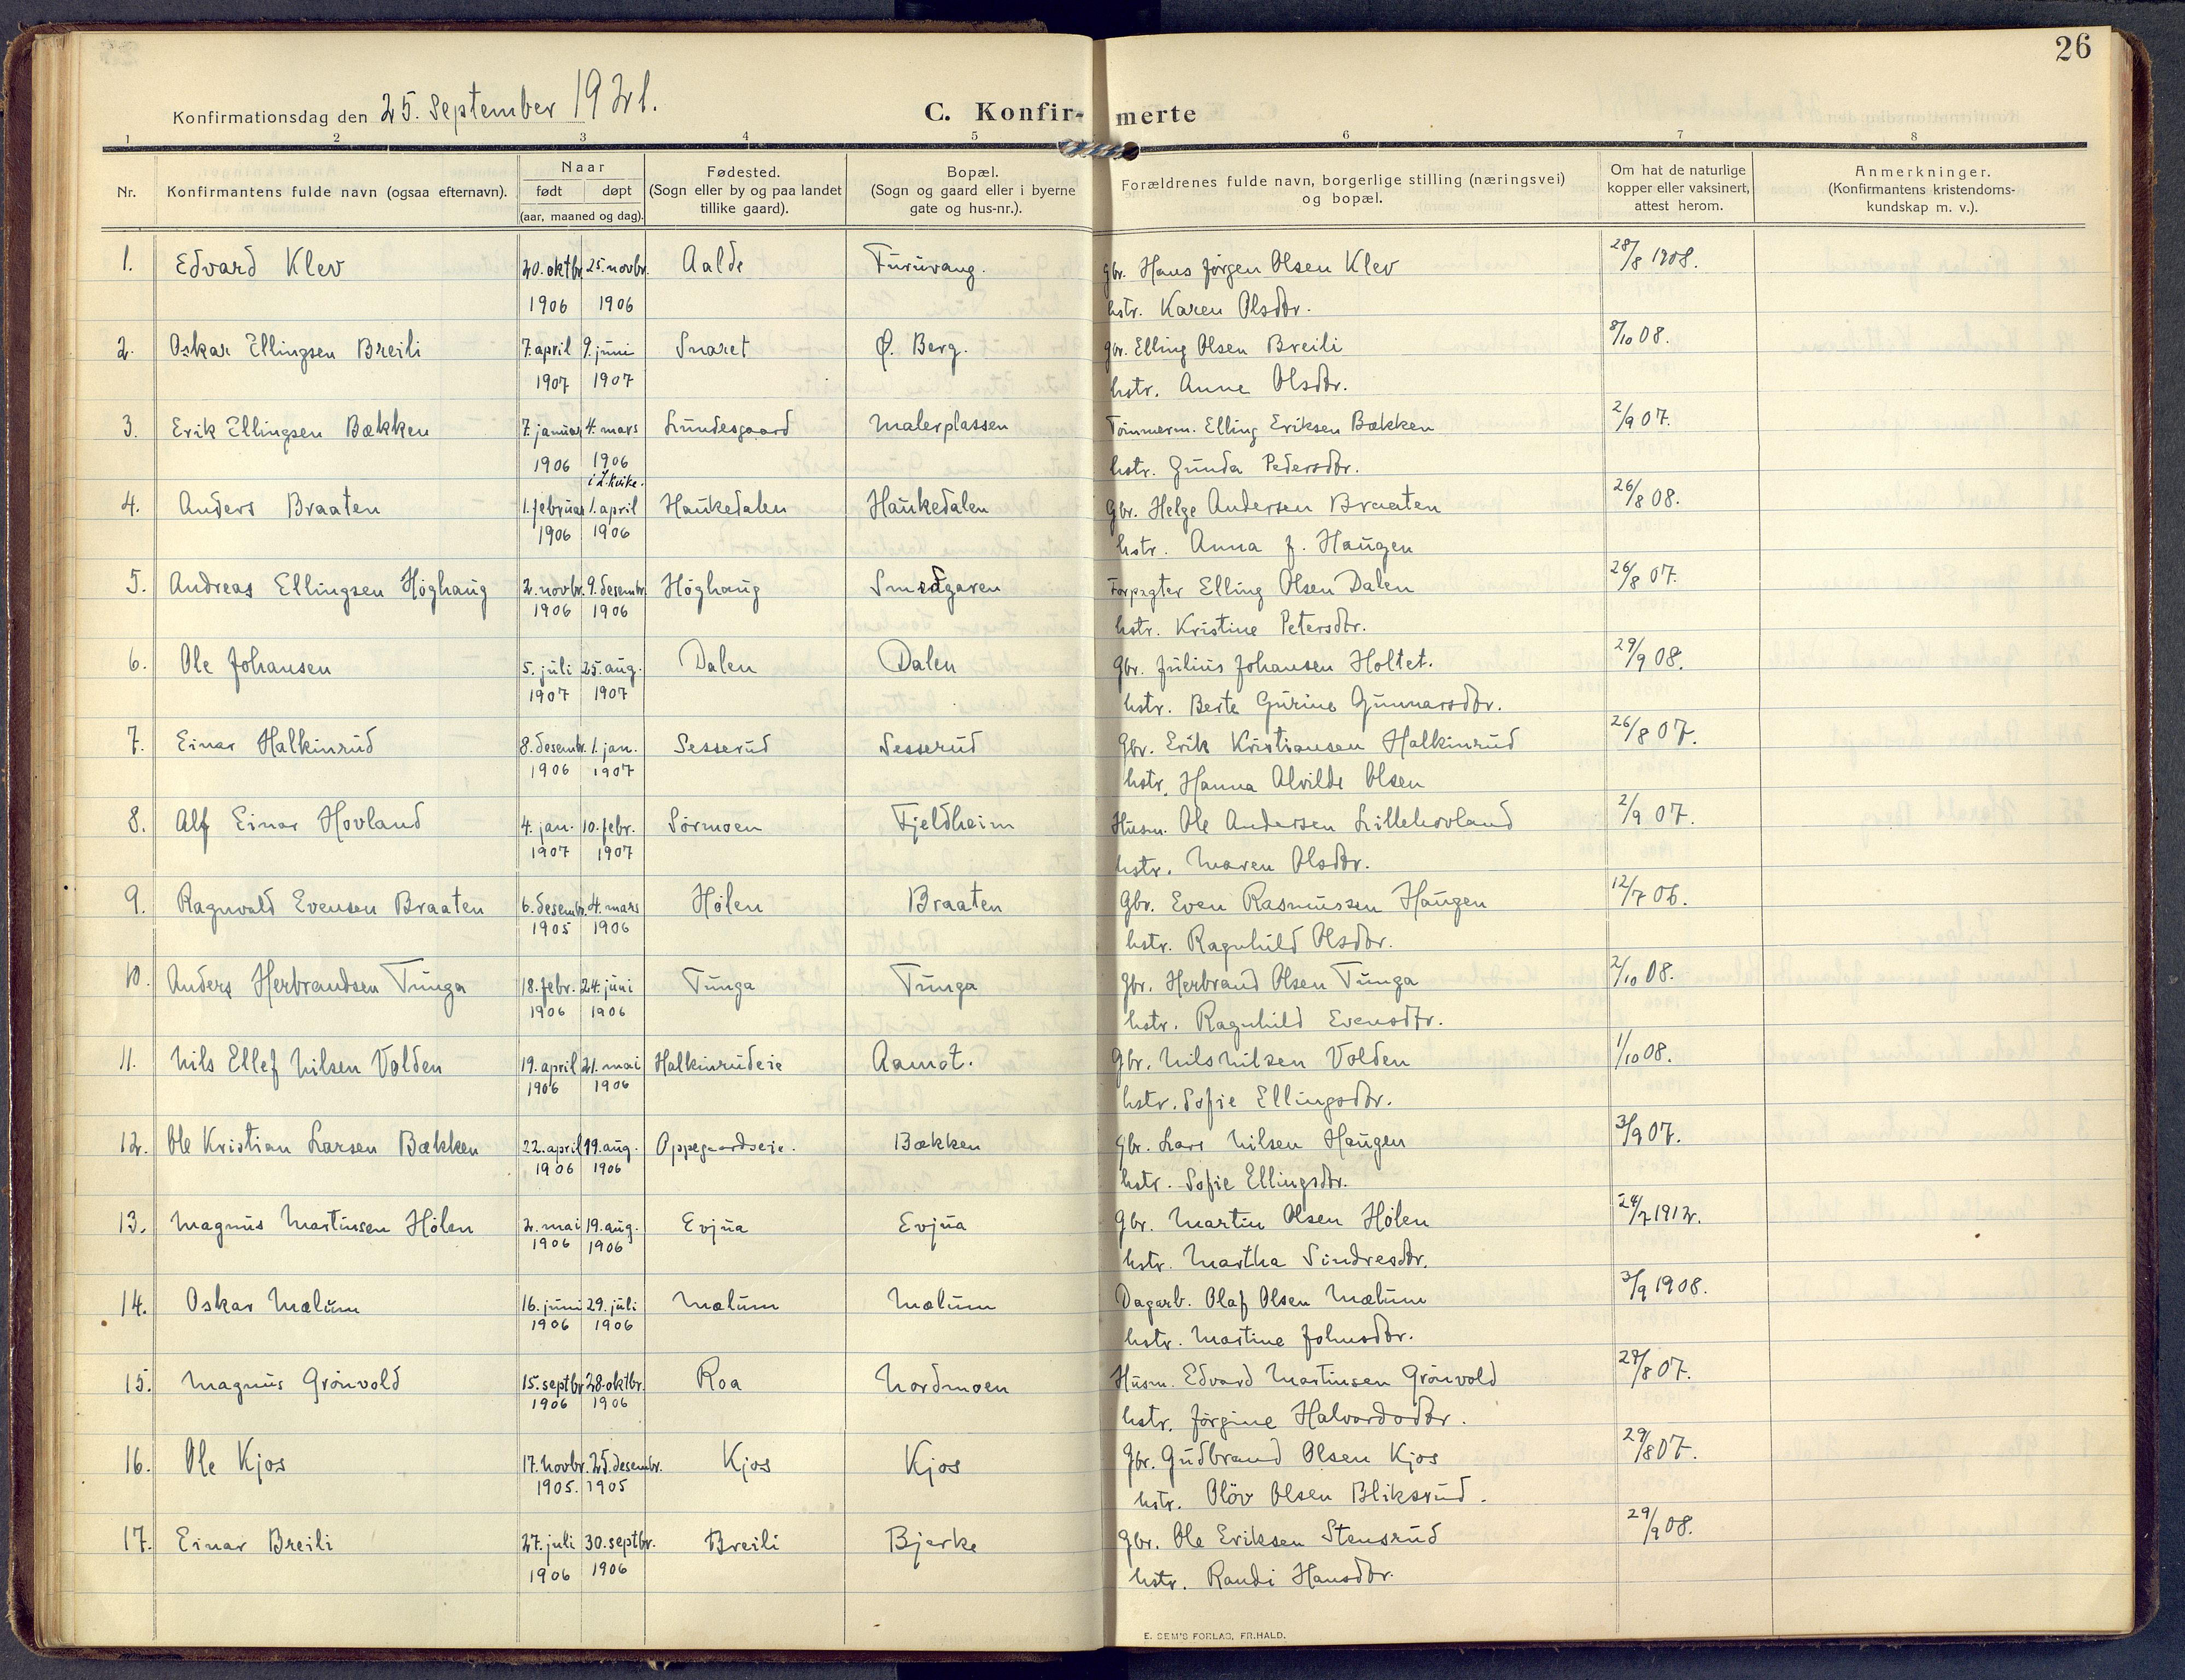 26
Konfirmationsdag den 25. September 1921.
C. Konfir- merte
1 2 3 4 5 6 7 8
Nr.
Konfirmantens fulde navn (ogsaa efternavn).
Naar
født døpt
(aar, maaned og dag).
Fødested.
(Sogn eller by og paa landet
tillike gaard).
Bopæl.
(Sogn og gaard eller i byerne
gate og hus-nr.).
Forældrenes fulde navn, borgerlige stilling (næringsvei)
og bopæl.
Om hat de naturlige
kopper eller vaksinert,
attest herom.
Anmerkninger.
(Konfirmantens kristendoms-
kundskap m. v.).
1. Edvard Klev 20. oktbr. 25. novbr. Aalde Furuvang. gbr. Hans Jørgen Olsen Klev 28/8 1908.
1906 1906 hstr. Karen Olsdtr.
2. Oskar Ellingsen Breili 7. april 9. juni Snaret Ø. Berg. gbr. Elling Olsen Breili 8/10 08.
1907 1907 hstr. Anne Olsdtr.
3. Erik Ellingsen Bækken 7. januar 4. mars Lundesgaard Malerplassen Tømmerm. Elling Eriksen Bækken 2/9 07.
1906 1906 hstr. Gunda Pedersdtr.
4. Anders Braaten 1. februar 1. april Haukedalen Haukedalen Gbr. Helge Andersen Braaten 26/8 08.
1906 1906 hstr. Anna f. Haugen
5. Andreas Ellingsen Høghaug 2. novbr. 9. desembr. Høghaug Smedgaren Forpagter Elling Olsen Dalen 26/8 07.
1906 1906 hstr. Kristine Petersdtr.
6. Ole Johansen 5. juli 25. aug. Dalen Dalen Gbr. Julius Johansen Holtet. 29/9 08.
1907 1907 hstr. Berte Gurine Gunnarsdtr.
7. Einar Halkinrud 8. desembr. 1. jan. Sesserud Sesserud Gbr. Erik Kristiansen Halkinrud 26/8 07.
1906 1907 hstr. Hanna Alvilde Olsen
8. Alf Einar Hovland 4. jan. 10. febr. Sørmoen Fjeldheim Husm. Ole Andersen Lillehovland 2/9 07.
1907 1907 hstr. Maren Olsdtr.
9. Ragnvald Evensen Braaten 6. desembr. 4. mars Hølen Braaten Gbr. Even Rasmussen Haugen 12/7 06.
1905 1906 hstr. Ragnhild Olsdtr.
10. Anders Herbrandsen Tunga 18. febr. 24. juni Tunga Tunga Gbr. Herbrand Olsen Tunga 2/10 08.
1906 1906 hstr. Ragnhild Evensdtr.
11. Nils Ellef Nilsen Volden 19. april 21. mai Halkinrudeie Aamot. Gbr. Nils Nilsen Volden 1/10 08.
1906 1906 hstr. Sofie Ellingsdtr.
12. Ole Kristian Larsen Bækken 22. april 19. aug. Oppegaardseie. Bækken Gbr. Lars Nilsen Haugen 3/9 07.
1906 1906 hstr. Sofie Ellingsdtr.
13. Magnus Martinsen Hølen 2. mai 19. aug. Evjua Evjua Gbr. Martin Olsen Hølen 24/7 1912.
1906 1906 hstr. Martha Sindresdtr.
14. Oskar Mælum 16. juni 29. juli Mælum Mælum Dagarb. Olaf Olsen Mælum 3/9 1908.
1906 1906 hstr. Martine Johnsdtr.
15. Magnus Grønvold 15. septbr. 28. oktbr. Roa Nordmoen Husm. Edvard Martinsen Grønvold 29/8 07.
1906 1906 hstr. Jørgine Halvordsdtr.
16. Ole Kjos 17. novbr. 25. desembr. Kjos Kjos Gbr. Gudbrand Olsen Kjos 29/8 07.
1905. 1905 hstr. Oløv Olsen Bliksrud.
17. Einar Breili 27. juli 30. septbr. Breili Bjerke Gbr. Ole Eriksen Stensrud 29/9 08.
1906 1906 hstr. Randi Hansdtr.
E. SEM'S FORLAG, FR.HALD.